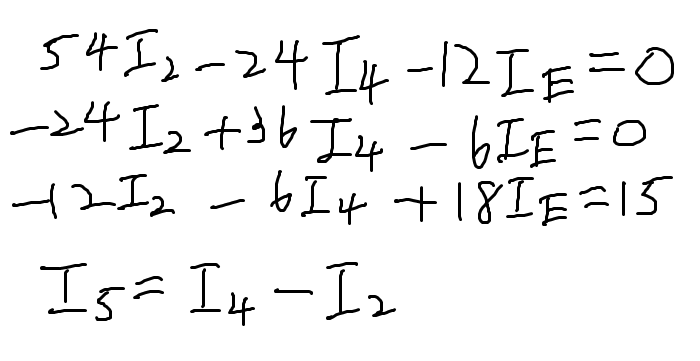 54I₂ - 24I₄ - 12I_E = 0
-24I₂ + 36I₄ - 6I_E = 0
-12I₂ - 6I₄ + 18I_E = 15
I₅ = I₄ - I₂